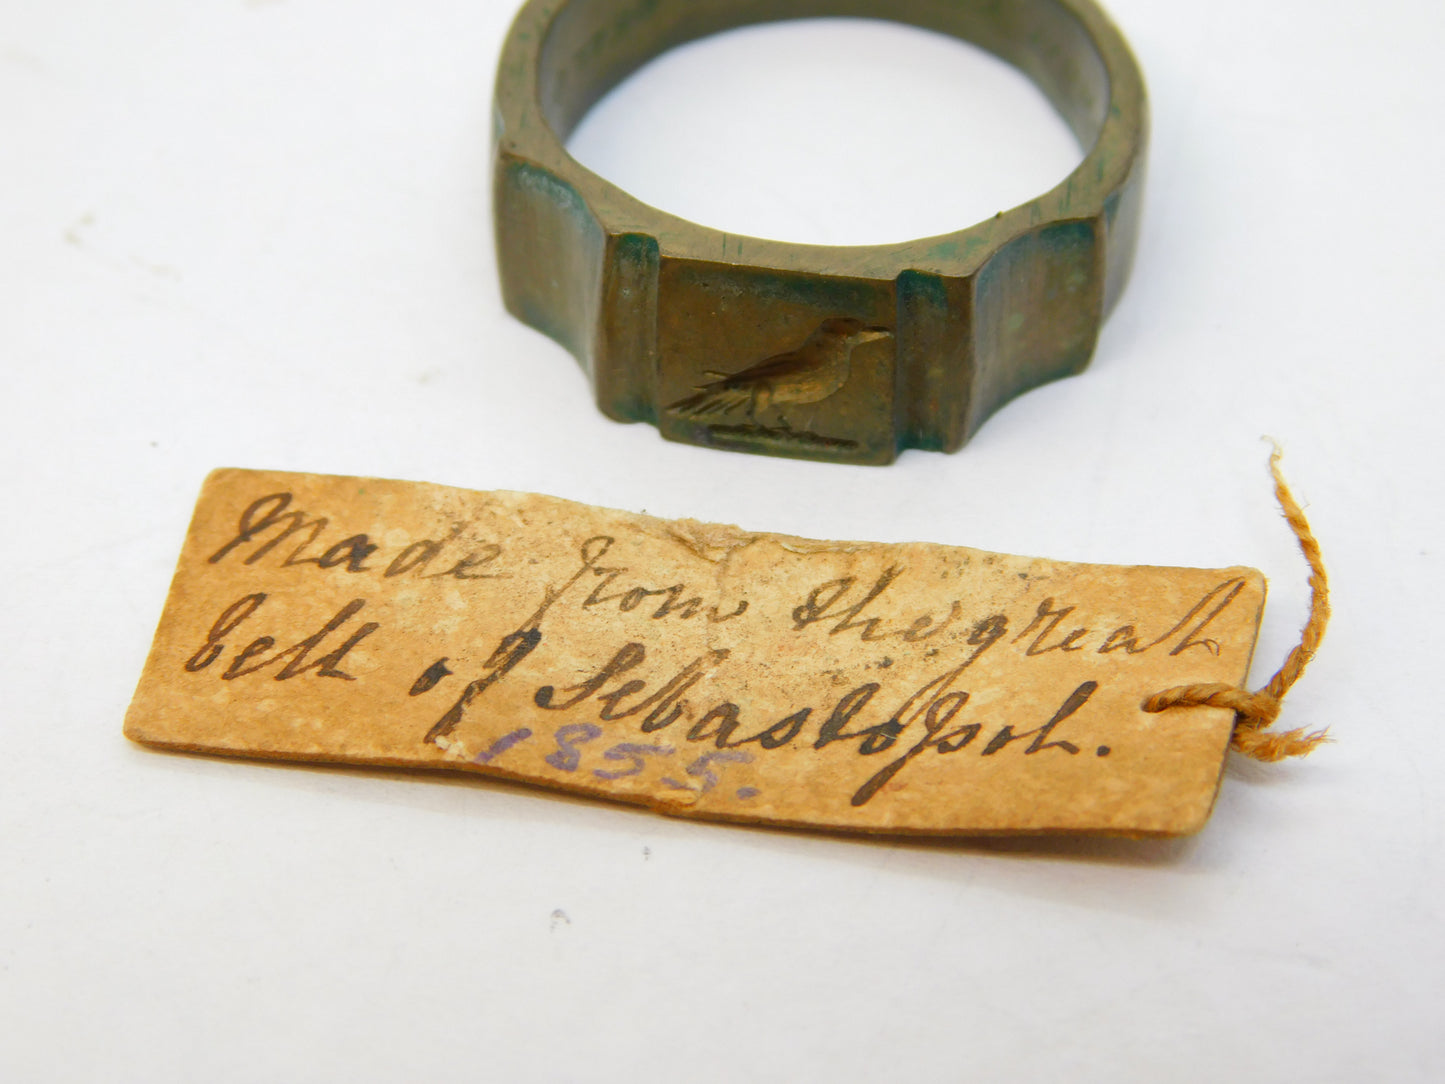 Made from the great
bell of Sebastopol.
1855.